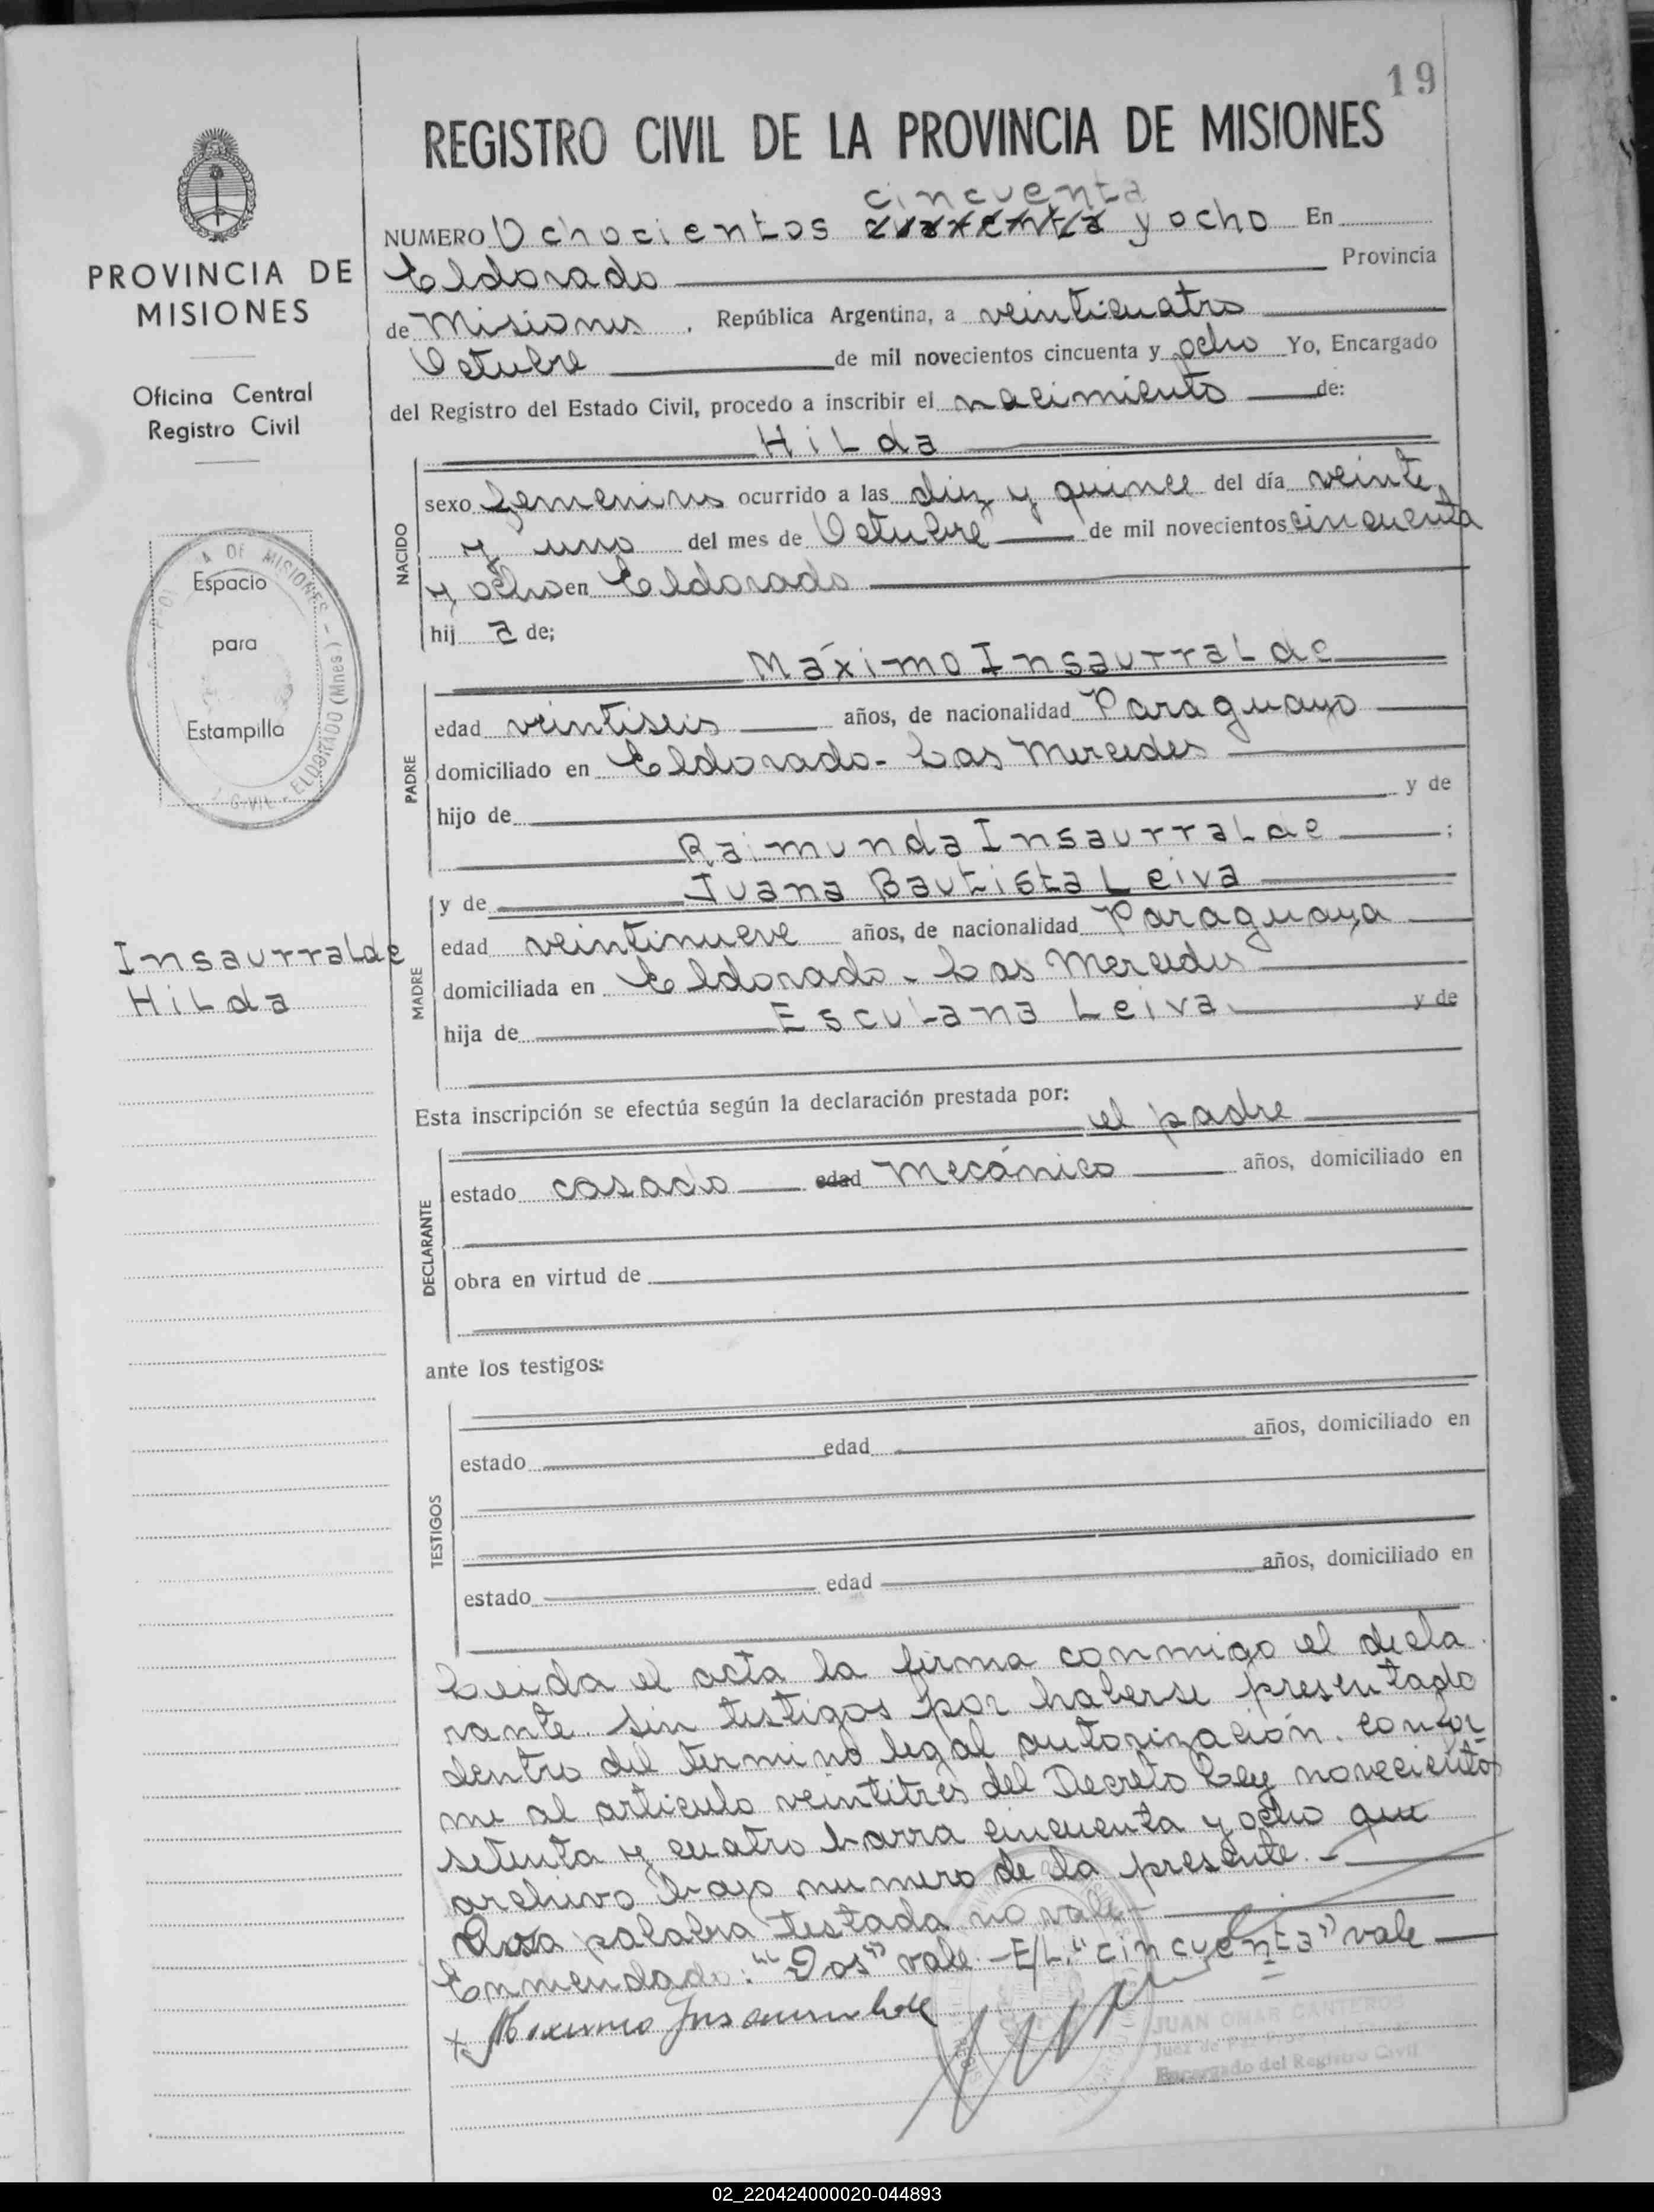 19
REGISTRO CIVIL DE LA PROVINCIA DE MISIONES
PROVINCIA DE
MISIONES
Oficina Central
Registro Civil
cincuenta
NUMERO Ochocientos cuarenta y ocho En
Eldorado Provincia
de Misiones, República Argentina, a veinticuatro
Octubre de mil novecientos cincuenta y ocho Yo, Encargado
del Registro del Estado Civil, procedo a inscribir el nacimiento de:
HiLda
NACIDO
sexo femenino ocurrido a las diez y quince del día veinte
y uno del mes de Octubre de mil novecientos cincuenta
y ocho en Eldorado
hij a de;
A DE MISIONES - ELDORADO (Mnes.)
CIVIL
Espacio
para
Estampilla
PADRE
Máximo Insaurralde
edad veintiseis años, de nacionalidad Paraguayo
domiciliado en Eldorado - Las Mercedes
hijo de y de
Raimunda Insaurralde ;
MADRE
y de Juana Bautista Leiva
edad veintinueve años, de nacionalidad Paraguaya
domiciliada en Eldorado - Las Mercedes
hija de Esculana Leiva y de
Insaurralde
HiLda
Esta inscripción se efectúa según la declaración prestada por:
el padre
DECLARANTE
estado casado edad Mecánico años, domiciliado en
obra en virtud de
ante los testigos:
TESTIGOS
estado edad años, domiciliado en
estado edad años, domiciliado en
Leida el acta la firma conmigo el decla
rante sin testigos por haberse presentado
dentro del termino legal autorización. confor-
me al articulo veintitrés del Decreto Ley novecientos
setenta y cuatro barra cincuenta y ocho que
archivo bajo numero de la presente. -
palabra testada no vale -
Enmendado: "Dos" vale. - E/L. "cincuenta" vale
x Maximo Insaurralde
JUAN OMAR CANTEROS
Juez de Paz
Encargado del Registro Civil
02_220424000020-044893